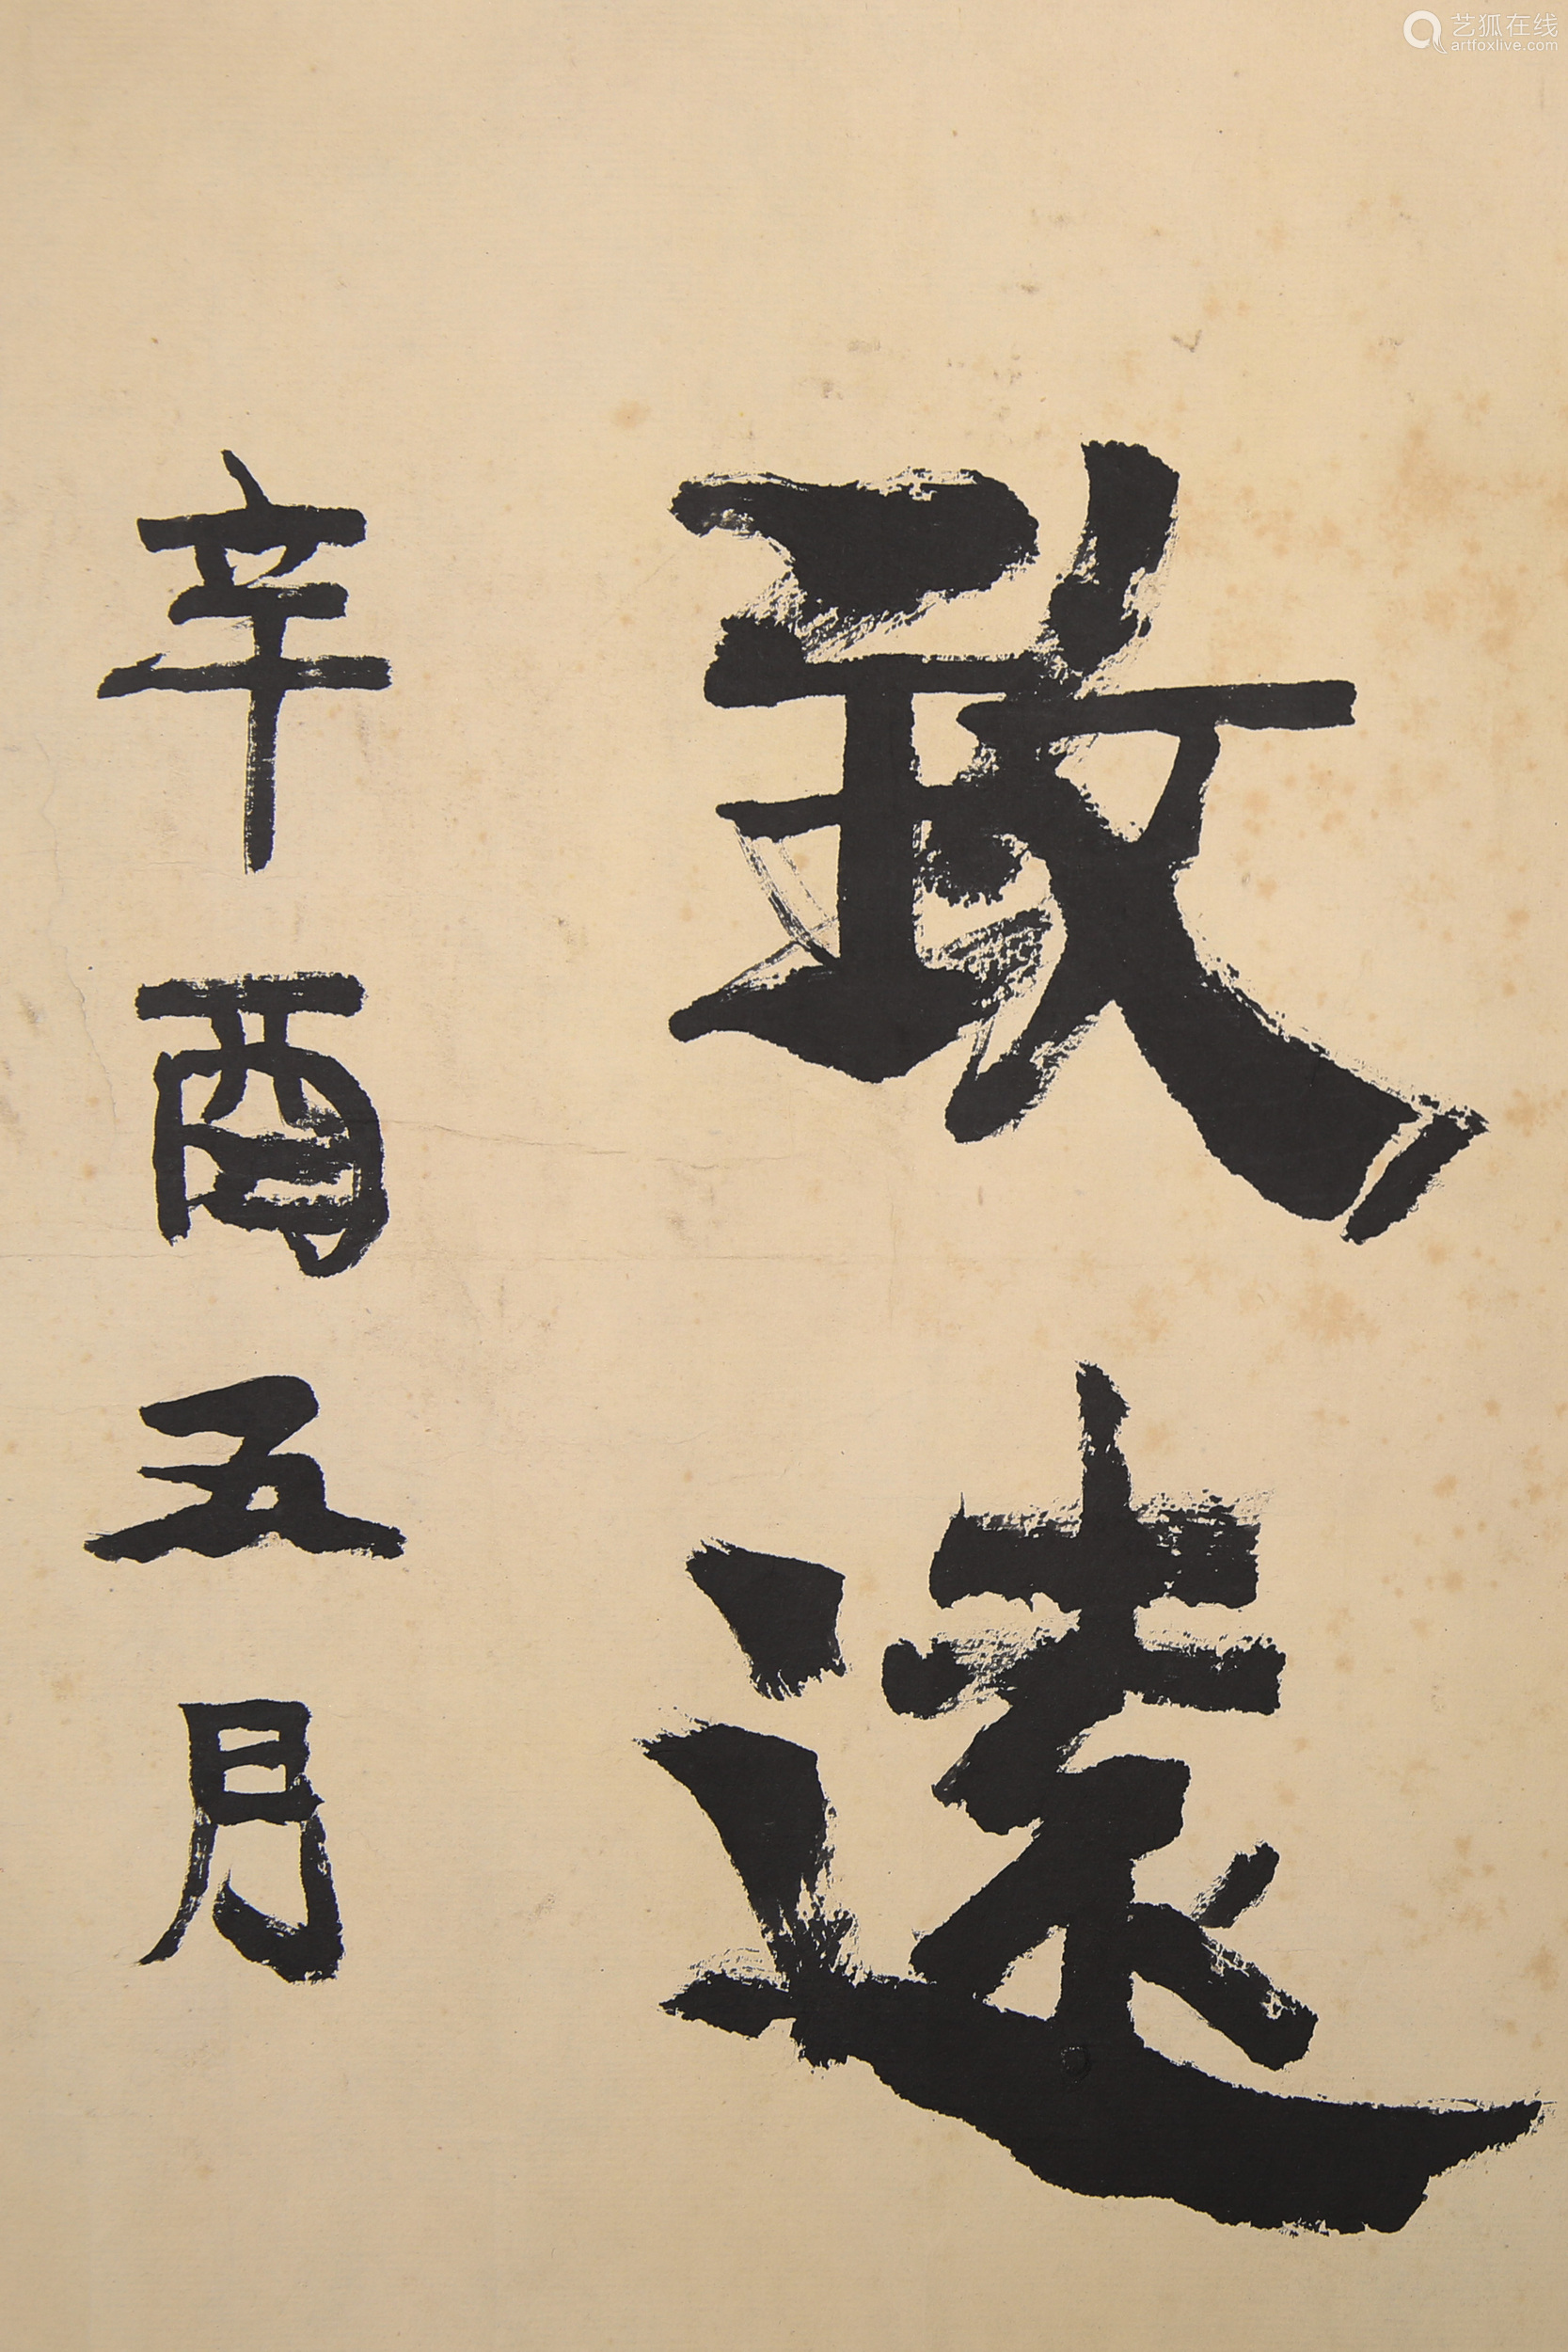 致遠
辛酉五月
艺狐在线
artfoxlive.com